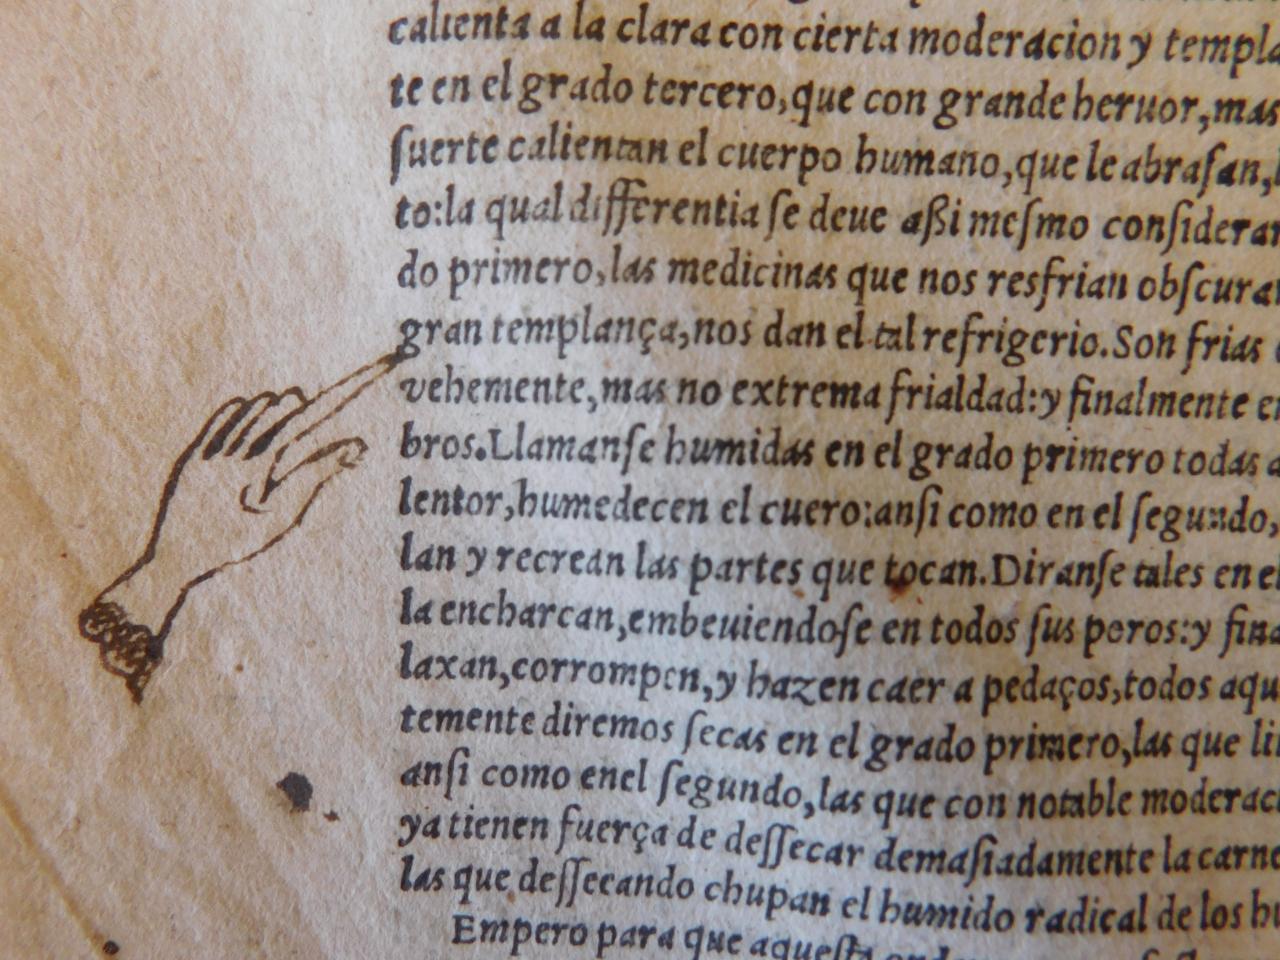 calienta a la clara con cierta moderacion y templa
te en el grado tercero, que con grande heruor, mas
ſuerte calientan el cuerpo humano, que le abraſan,
to: la qual differentia ſe deue aßi meſmo conſiderar
do primero, las medicinas que nos resfrian obſcura
gran templança, nos dan el tal refrigerio. Son frias
vehemente, mas no extrema frialdad: y finalmente
bros. Llamanſe humidas en el grado primero todas
lentor, humedecen el cuero: anſi como en el ſegundo,
lan y recrean las partes que tocan. Diranſe tales en el
la encharcan, embeuiendoſe en todos ſus poros: y fina
laxan, corrompen, y hazen caer a pedaços, todos aqu
temente diremos ſecas en el grado primero, las que li
anſi como enel ſegundo, las que con notable moderac
ya tienen fuerça de deſſecar demaſiadamente la carne
las que deſſecando chupan el humido radical de los
Empero para que aqueſta